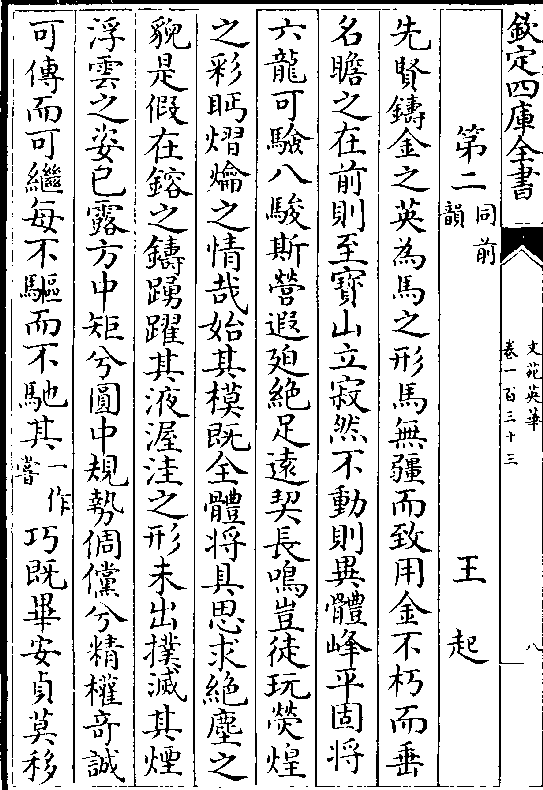 欽定四庫全書
文苑英華
卷一百三十三
八
第二同前韻
王起
先賢鑄金之英為馬之形馬無疆而致用金不朽而垂
名瞻之在前則至寳山立寂然不動則異體峰平固將
六龍可驗八駿斯營遐廻絶足遠契長鳴豈徒玩熒煌
之彩眄熠爚之情哉始其模既全體將具思求絶塵之
貌是假在鎔之鑄踴躍其液渥洼之形未出撲滅其煙
浮雲之姿已露方中矩兮圓中規勢倜儻兮精權竒誠
可傳而可繼每不驅而不馳其一作嘗巧既畢安貞莫移